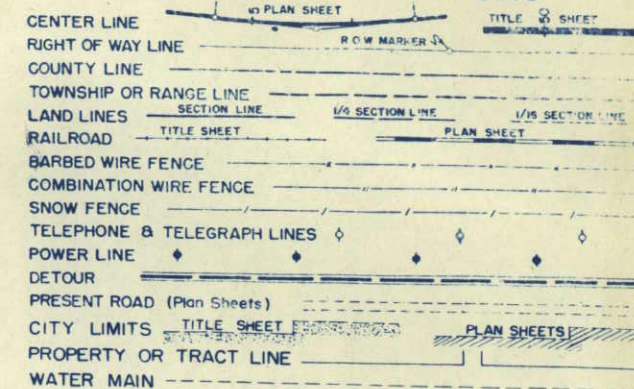 PLAN SHEET
TITLE SHEET
CENTER LINE
RIGHT OF WAY LINE ROW MARKER
COUNTY LINE
TOWNSHIP OR RANGE LINE
LAND LINES SECTION LINE 1/4 SECTION LINE 1/16 SECTION LINE
RAILROAD TITLE SHEET PLAN SHEET
BARBED WIRE FENCE
COMBINATION WIRE FENCE
SNOW FENCE
TELEPHONE & TELEGRAPH LINES
POWER LINE
DETOUR
PRESENT ROAD (Plan Sheets)
CITY LIMITS TITLE SHEET PLAN SHEETS
PROPERTY OR TRACT LINE
WATER MAIN